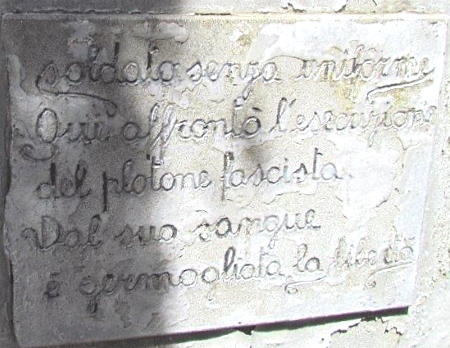 soldata senza uniforme
Qui affrontò l'esecuzione
del plotone fascista.
Dal suo sangue
è germogliata la libertà